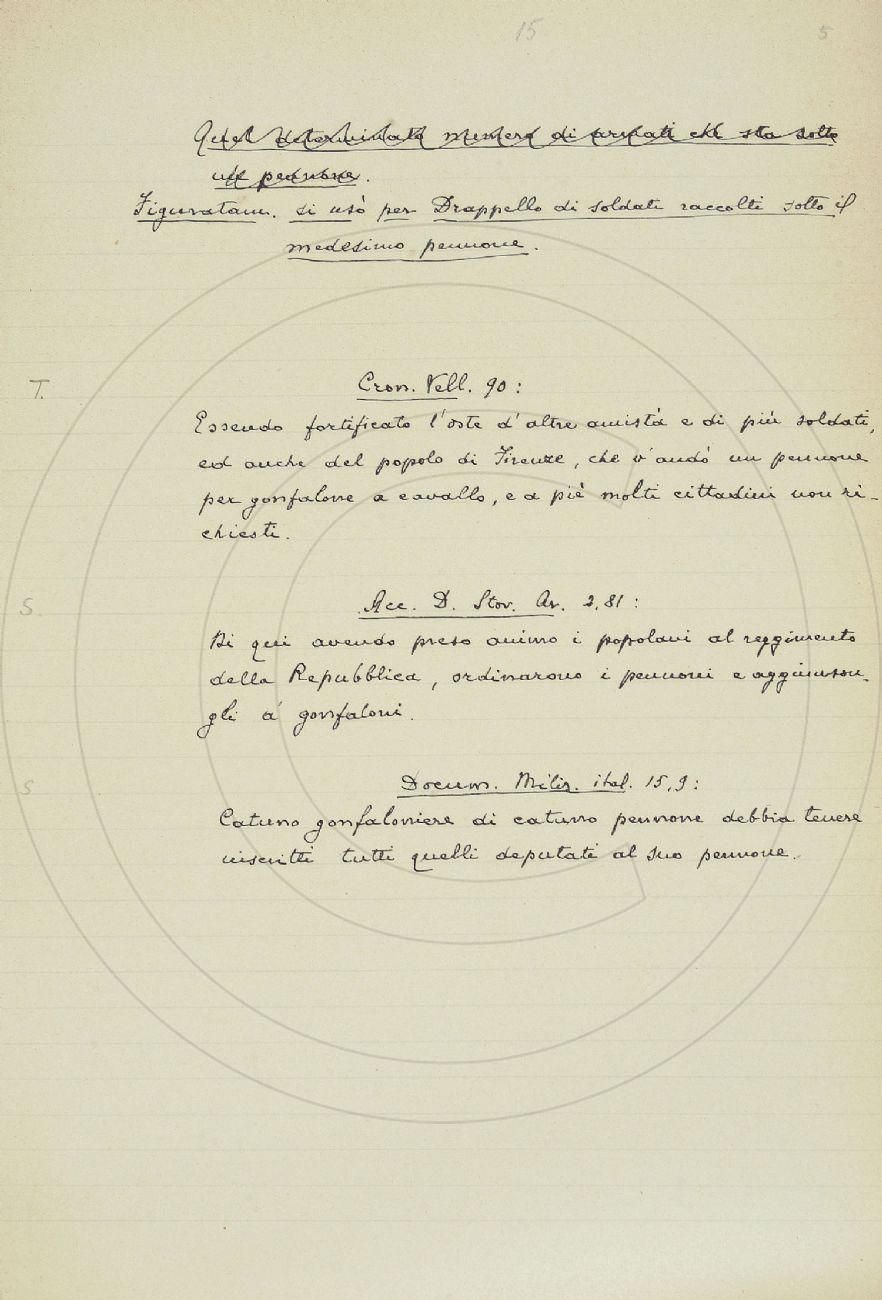 15 5
Quel determinato numero di armati che sta sotto
un pennone.
Figuratam. si usò per Drappello di soldati raccolti sotto il
medesimo pennone.
T.
Cron. Vell. 90:
Essendo fortificato l'oste d'altre amistà e di più soldati,
ed anche del popolo di Firenze, che v'andò un pennone
per gonfalone a cavallo, e a piè molti cittadini non ri-
chiesti.
S.
Acc. D. Stor. Ar. 2,81:
Di qui avendo preso animo i popolani al reggimento
della Repubblica, ordinarono i pennoni e aggiunson-
gli a' gonfaloni.
S
Docum. Miliz. ital. 15,9:
Catuno gonfaloniere di catuno pennone debbia tenere
inscritti tutti quelli deputati al suo pennone.